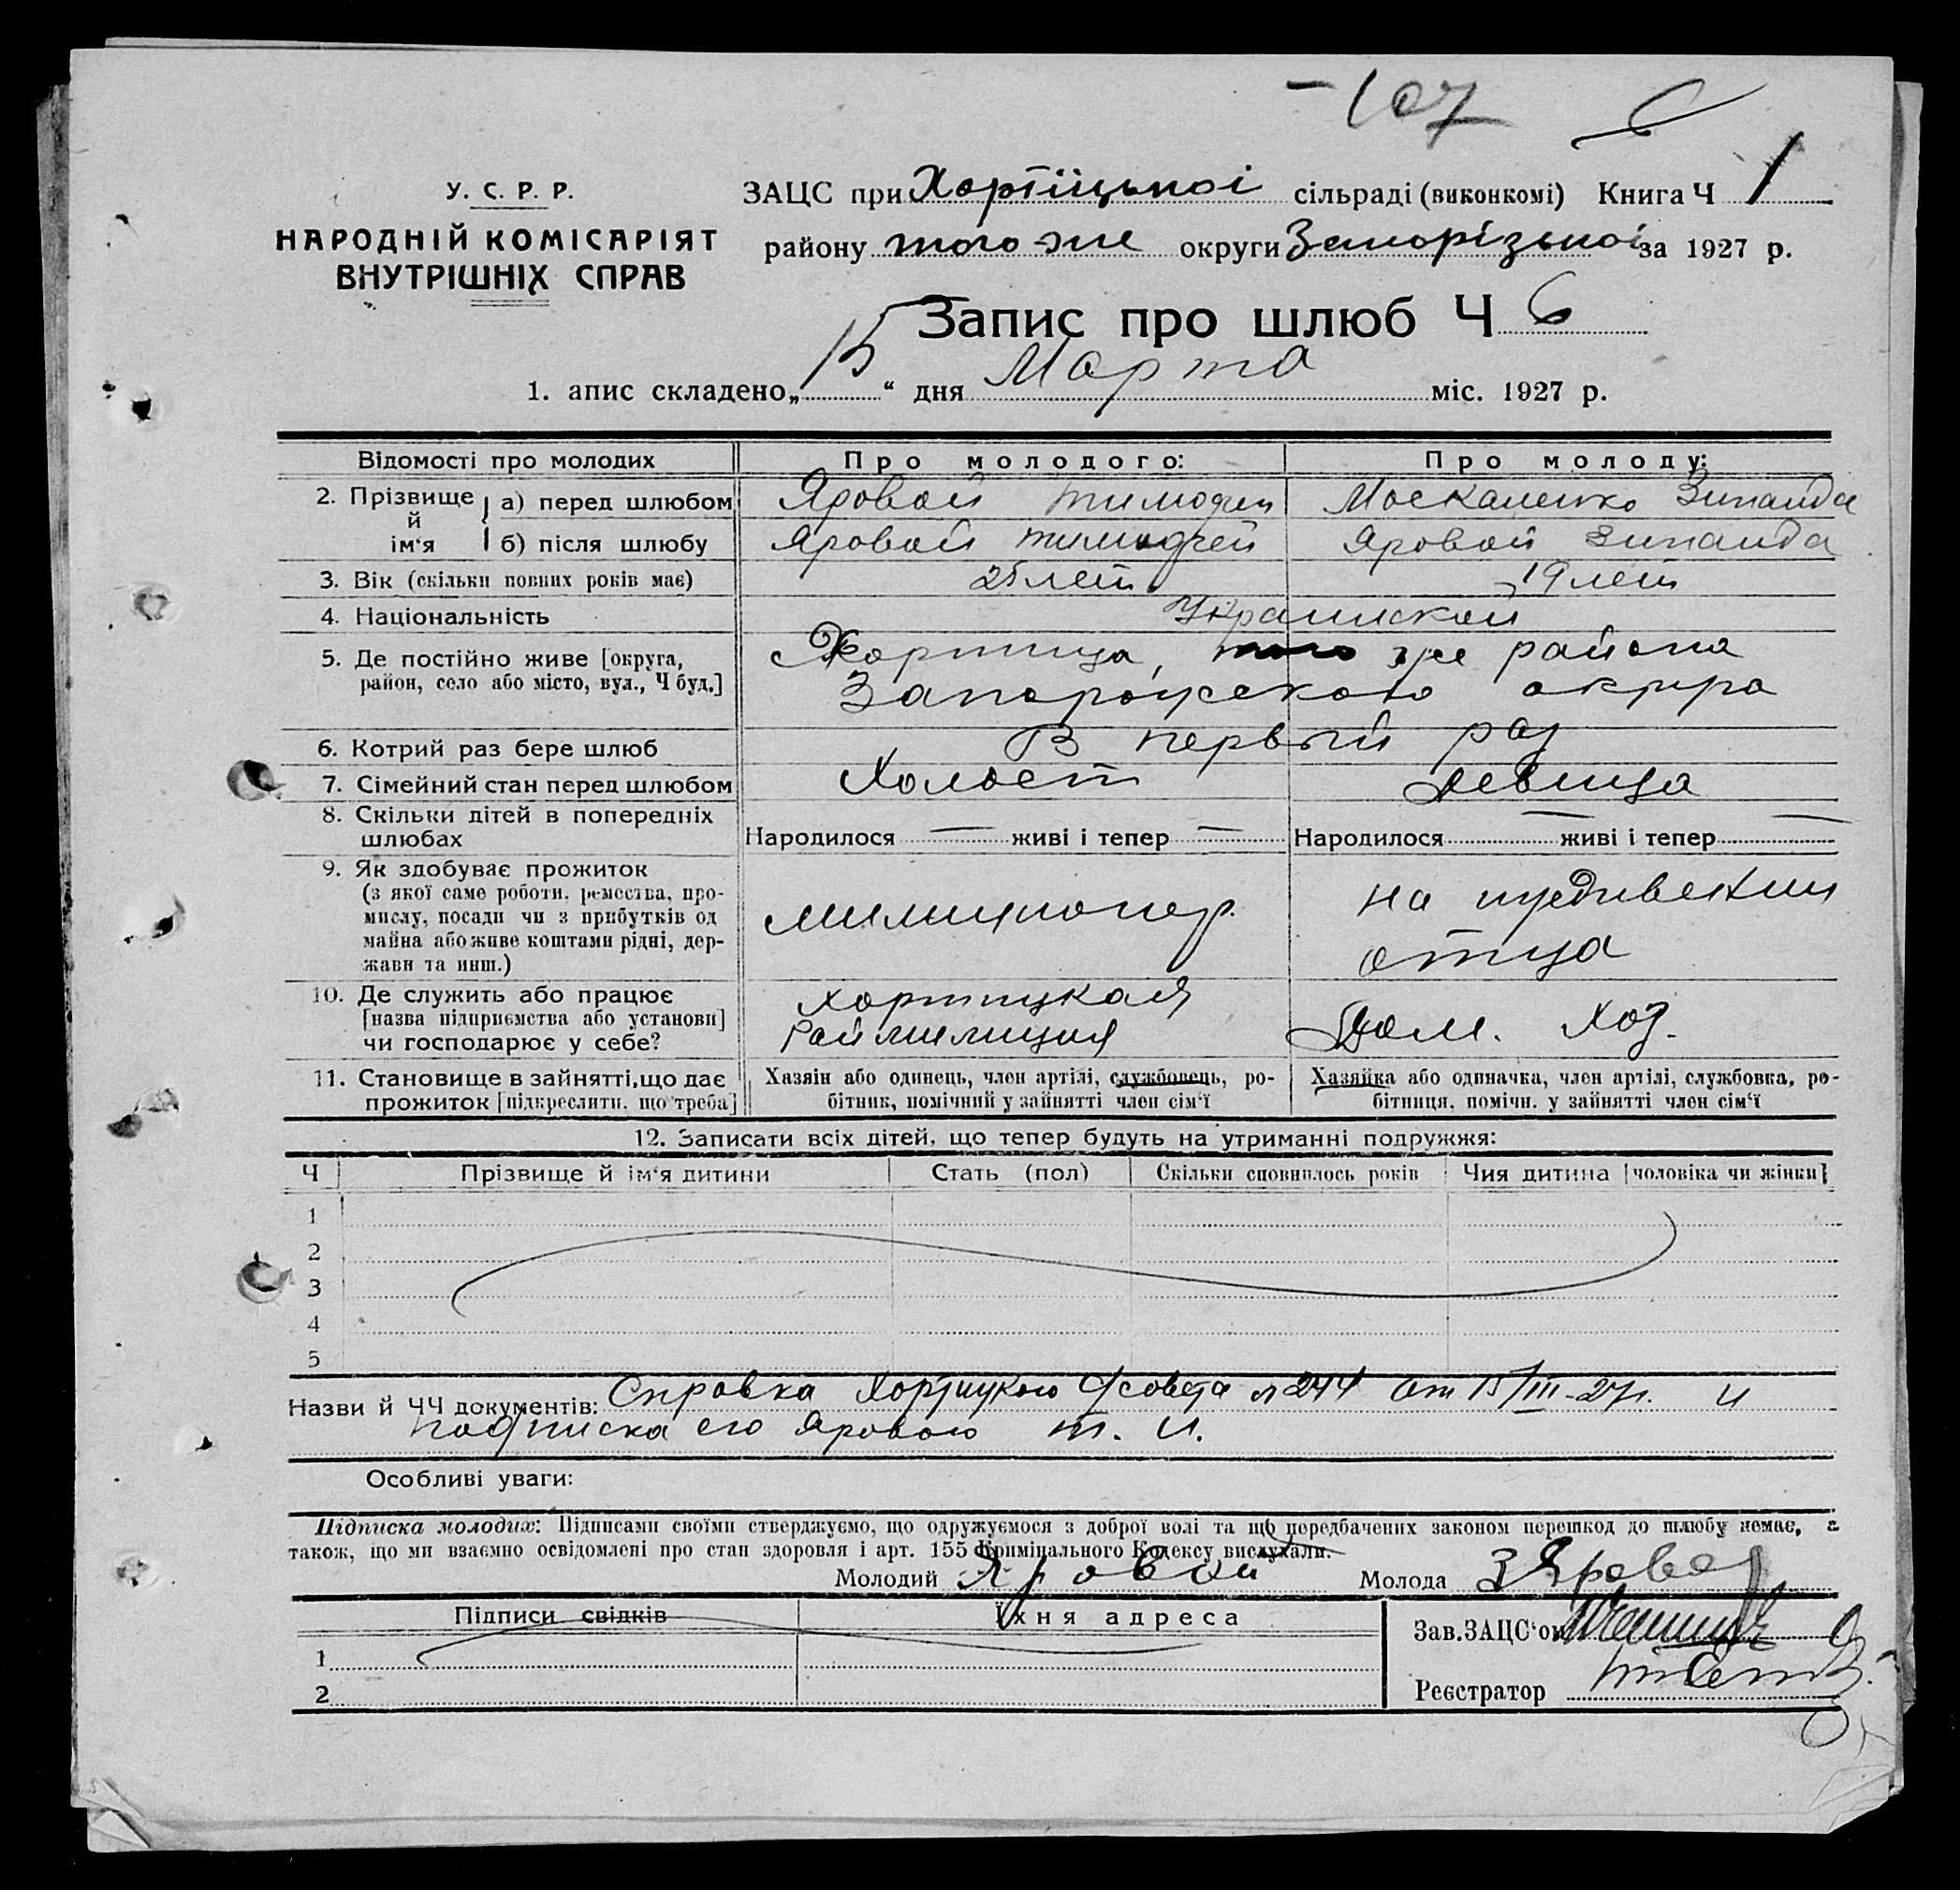 -107
У. С. Р. Р.
НАРОДНІЙ КОМІСАРІЯТ
ВНУТРІШНІХ СПРАВ
ЗАЦС при Хортіцькоі сільраді (виконкомі) Книга Ч 1
району того-же округи Запорізькоі за 1927 р.
Запис про шлюб Ч 6
1. апис складено „15“ дня Марта міс. 1927 р.
Відомості про молодих Про молодого: Про молоду:
2. Прізвище й ім‘я а) перед шлюбом Яровой Тимофей Москаленко Зинаида
б) після шлюбу Яровой Тимофей Яровой Зинаида
3. Вік (скільки повних років має) 25 лет 19 лет
4. Національність Украинской
5. Де постійно живе [округа, Хортица, того же района
район, село або місто, вул., Ч буд.] Запорожского округа
6. Котрий раз бере шлюб В первый раз
7. Сімейний стан перед шлюбом Холост Девица
8. Скільки дітей в попередніх
шлюбах Народилося — живі і тепер — Народилося — живі і тепер —
9. Як здобуває прожиток
(з якої саме роботи, ремества, про-
мислу, посади чи з прибутків од
майна або живе коштами рідні, дер-
жави та инш.)
милиционер
на иждивении
отца
10. Де служить або працює
[назва підприємства або установи]
чи господарює у себе?
Хортицкая
Раймилиция
Дом. Хоз.
11. Становище в зайнятті, що дає
прожиток [підкреслити, що треба]
Хазяін або одинець, член артілі, службовець, ро-
бітник, помічний у зайнятті член сім‘ї
Хазяйка або одиначка, член артілі, службовка, ро-
бітниця, помічн. у зайнятті член сім‘ї
12. Записати всіх дітей, що тепер будуть на утриманні подружжя:
Ч Прізвище й ім‘я дитини Стать (пол) Скільки сповнилось років Чия дитина [чоловіка чи жінки]
1
2
3
4
5
Назви й ЧЧ документів: Справка Хортицкого с/совета № 244 от 15/III-27г. и
подписка его Ярового Т. И.
Особливі уваги:
Підписка молодих: Підписами своїми стверджуємо, що одружуємося з доброї волі та що передбачених законом перешкод до шлюбу немає, а
також, що ми взаємно освідомлені про стан здоровля і арт. 155 Кримінального Кодексу вислухали.
Молодий Яровой Молода З Яровой
Підписи свідків Їхня адреса
1
2
Зав. ЗАЦС‘ом
Реєстратор